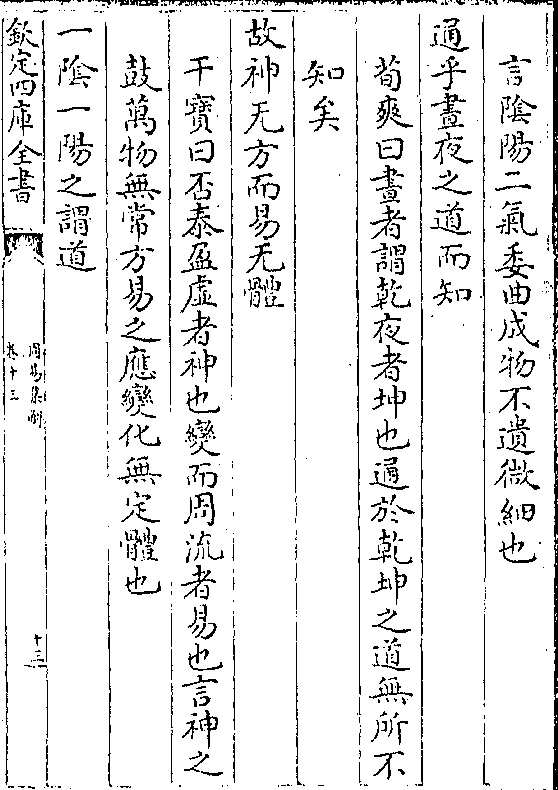 言陰陽二氣委曲成物不遺微細也
通乎晝夜之道而知
荀爽曰晝者謂乾夜者坤也通於乾坤之道無所不
知矣
故神无方而易无體
干寶曰否泰盈虛者神也變而周流者易也言神之
鼓萬物無常方易之應變化無定體也
一陰一陽之謂道
欽定四庫全書
周易集解
卷十三
十三